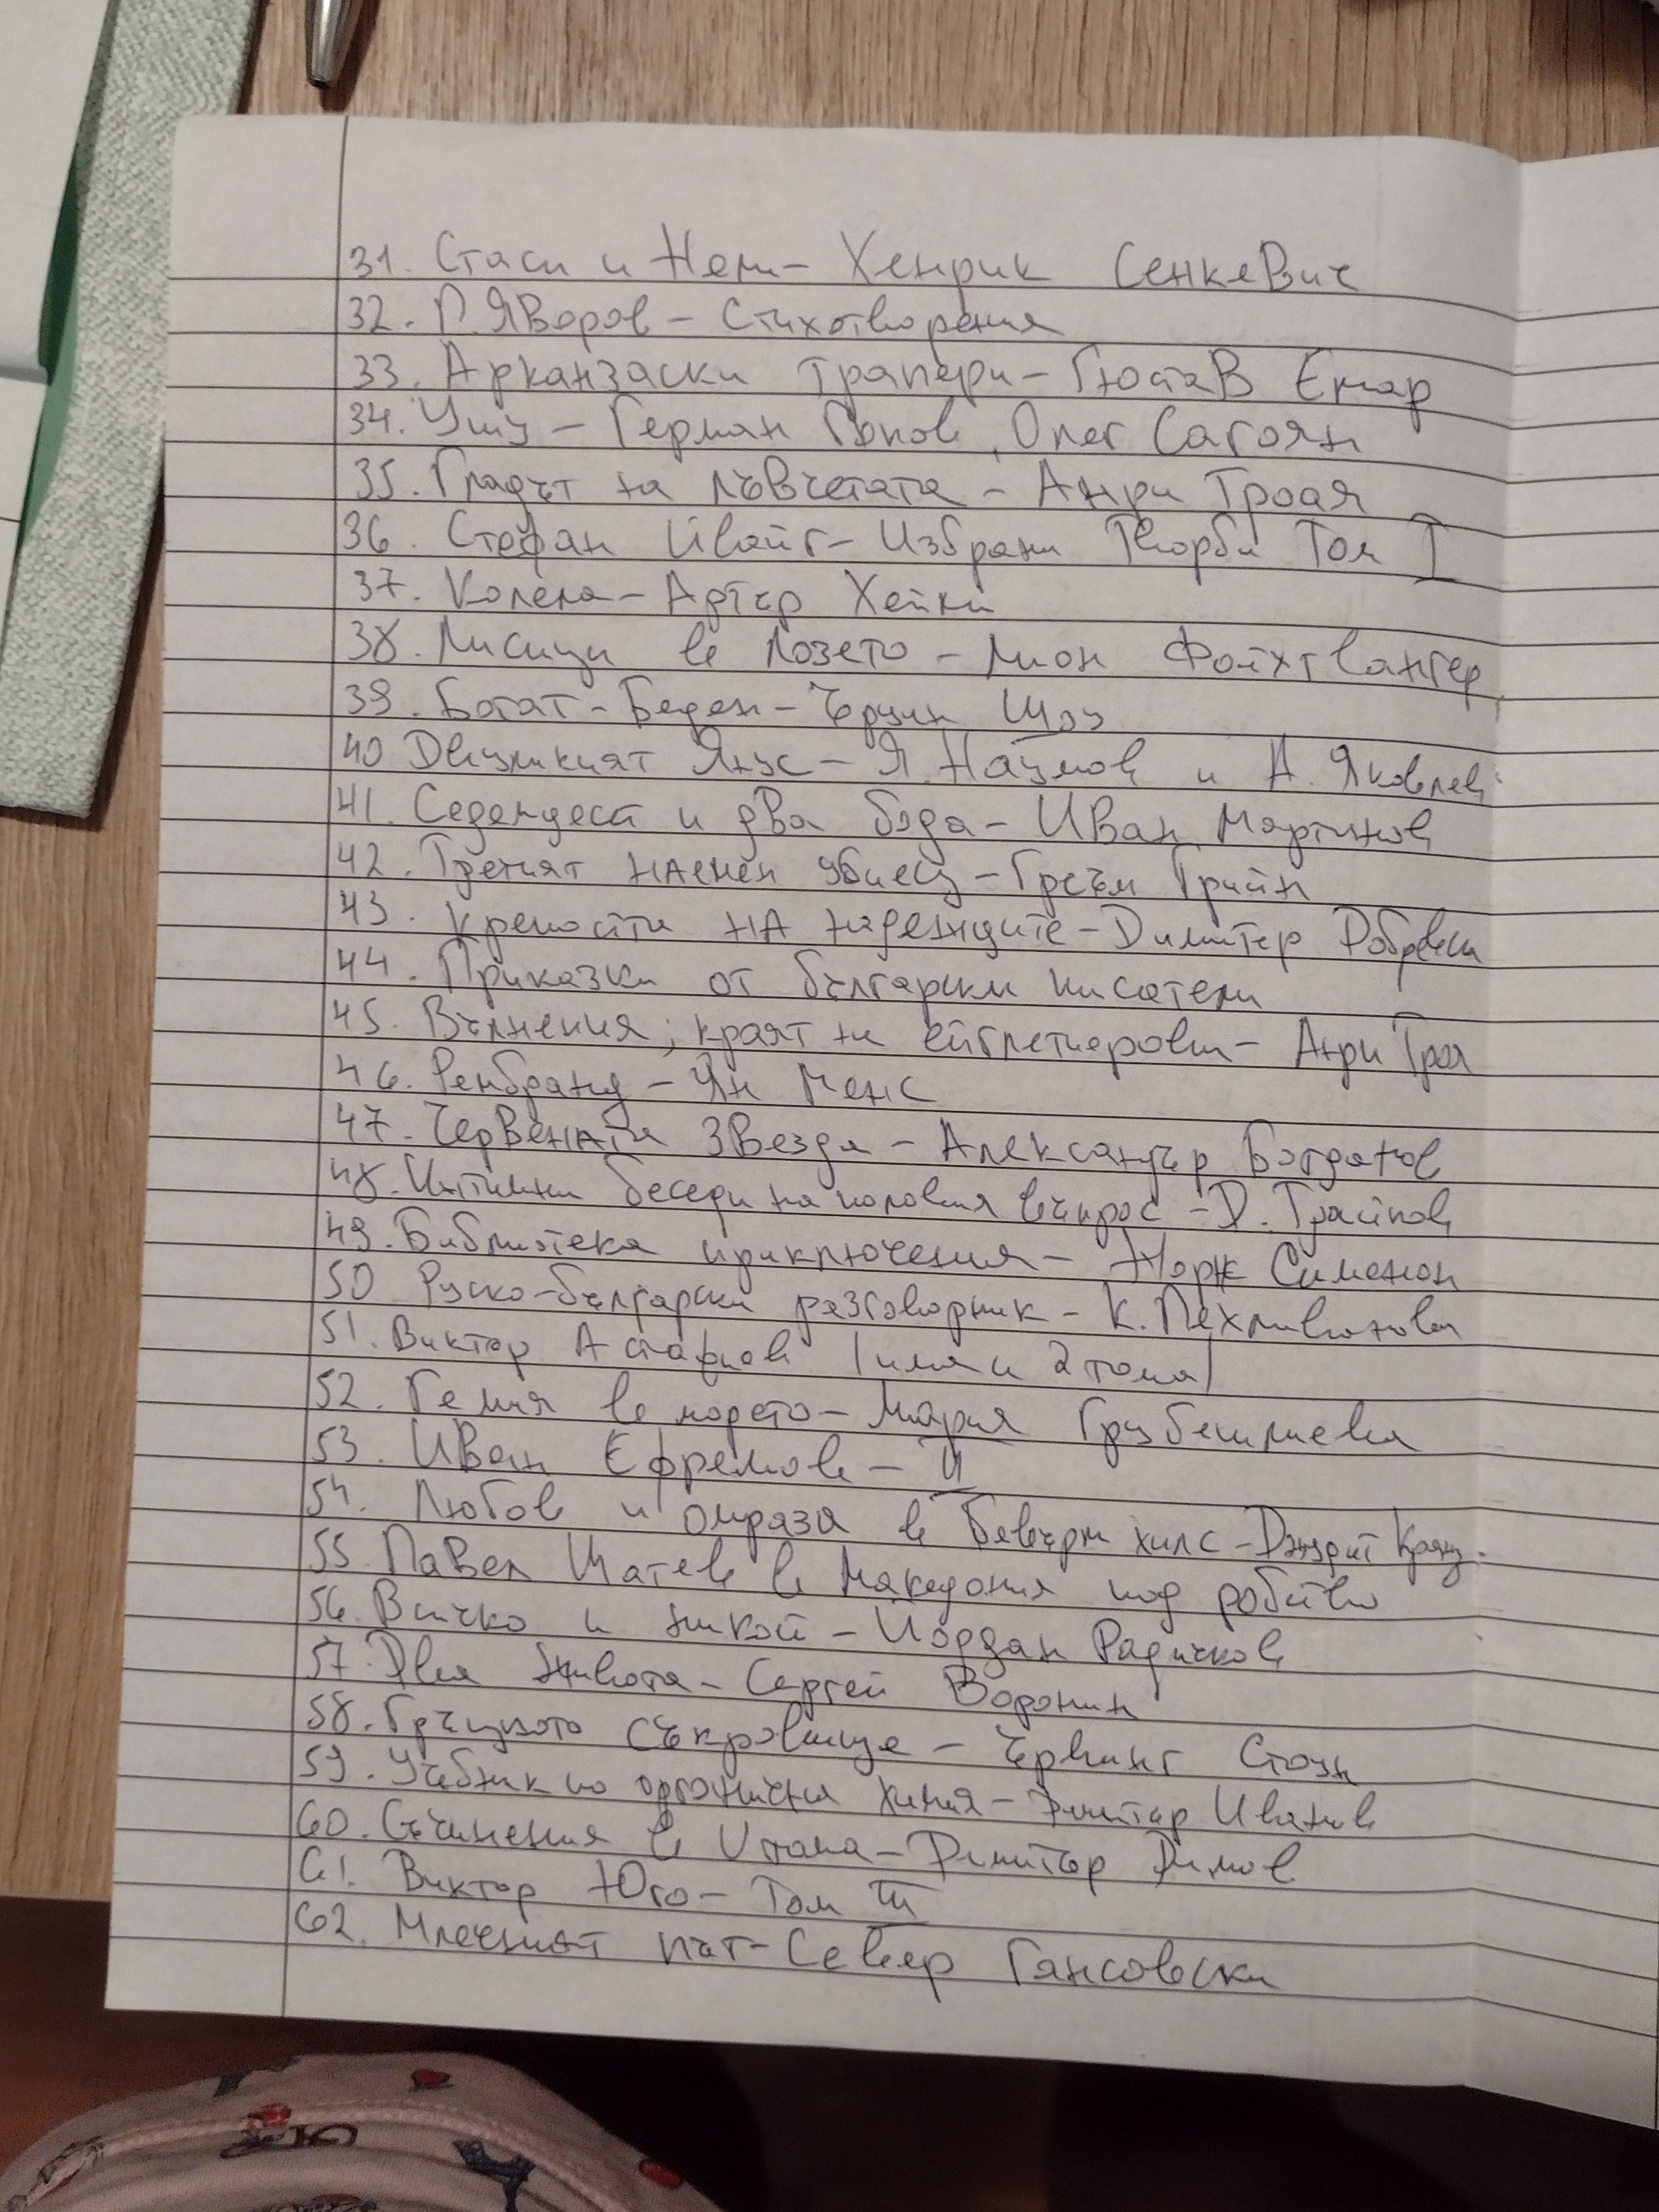 31. Стаси и Нели - Хенрик Сенкевич
32. П. Яворов - Стихотворения
33. Арканзаски трапери - Гюстав Емар
34. Ушу - Герман Попов, Олег Сагоян
35. Гладът на лъвчетата - Анри Троая
36. Стефан Цвайг - Избрани Творби Том I
37. Колела - Артър Хейли
38. Лисици в лозето - Лион Фойхтвангер
39. Богат - Беден - Ъруин Шоу
40 Двуликият Янус - Я. Наумов и А. Яковлев
41. Седемдесет и два бода - Иван Мартинов
42. Третият наемен убиец - Греъм Грийн
43. Крепостта на надеждите - Димитър Добревски
44. Приказки от български писатели
45. Вълнения; краят на ейглетиерови - Анри Троя
46. Рембранд - Ян Менс
47. Червената звезда - Александър Богданов
48. Интимни беседи на половия въпрос - Д. Трайков
49. Библиотека приключения - Жорж Сименон
50 Руско-български разговорник - К. Пехливанова
51. Виктор Астафиев /има и 2 тома/
52. Гемия в морето - Мария Грубешлиева
53. Иван Ефремов - II
54. Любов и омраза в Бевърли хилс - Джудит Кранц.
55. Павел Шатев в Македония под робство
56. Всички и никой - Йордан Радичков
57. Два живота - Сергей Воронин
58. Гръцкото съкровище - Ървинг Стоун
59. Учебник по органична химия - Димитър Иванов
60. Съчинения в тома - Димитър Димов
61. Виктор Юго - Том III
62. Млечният път - Север Гансовски